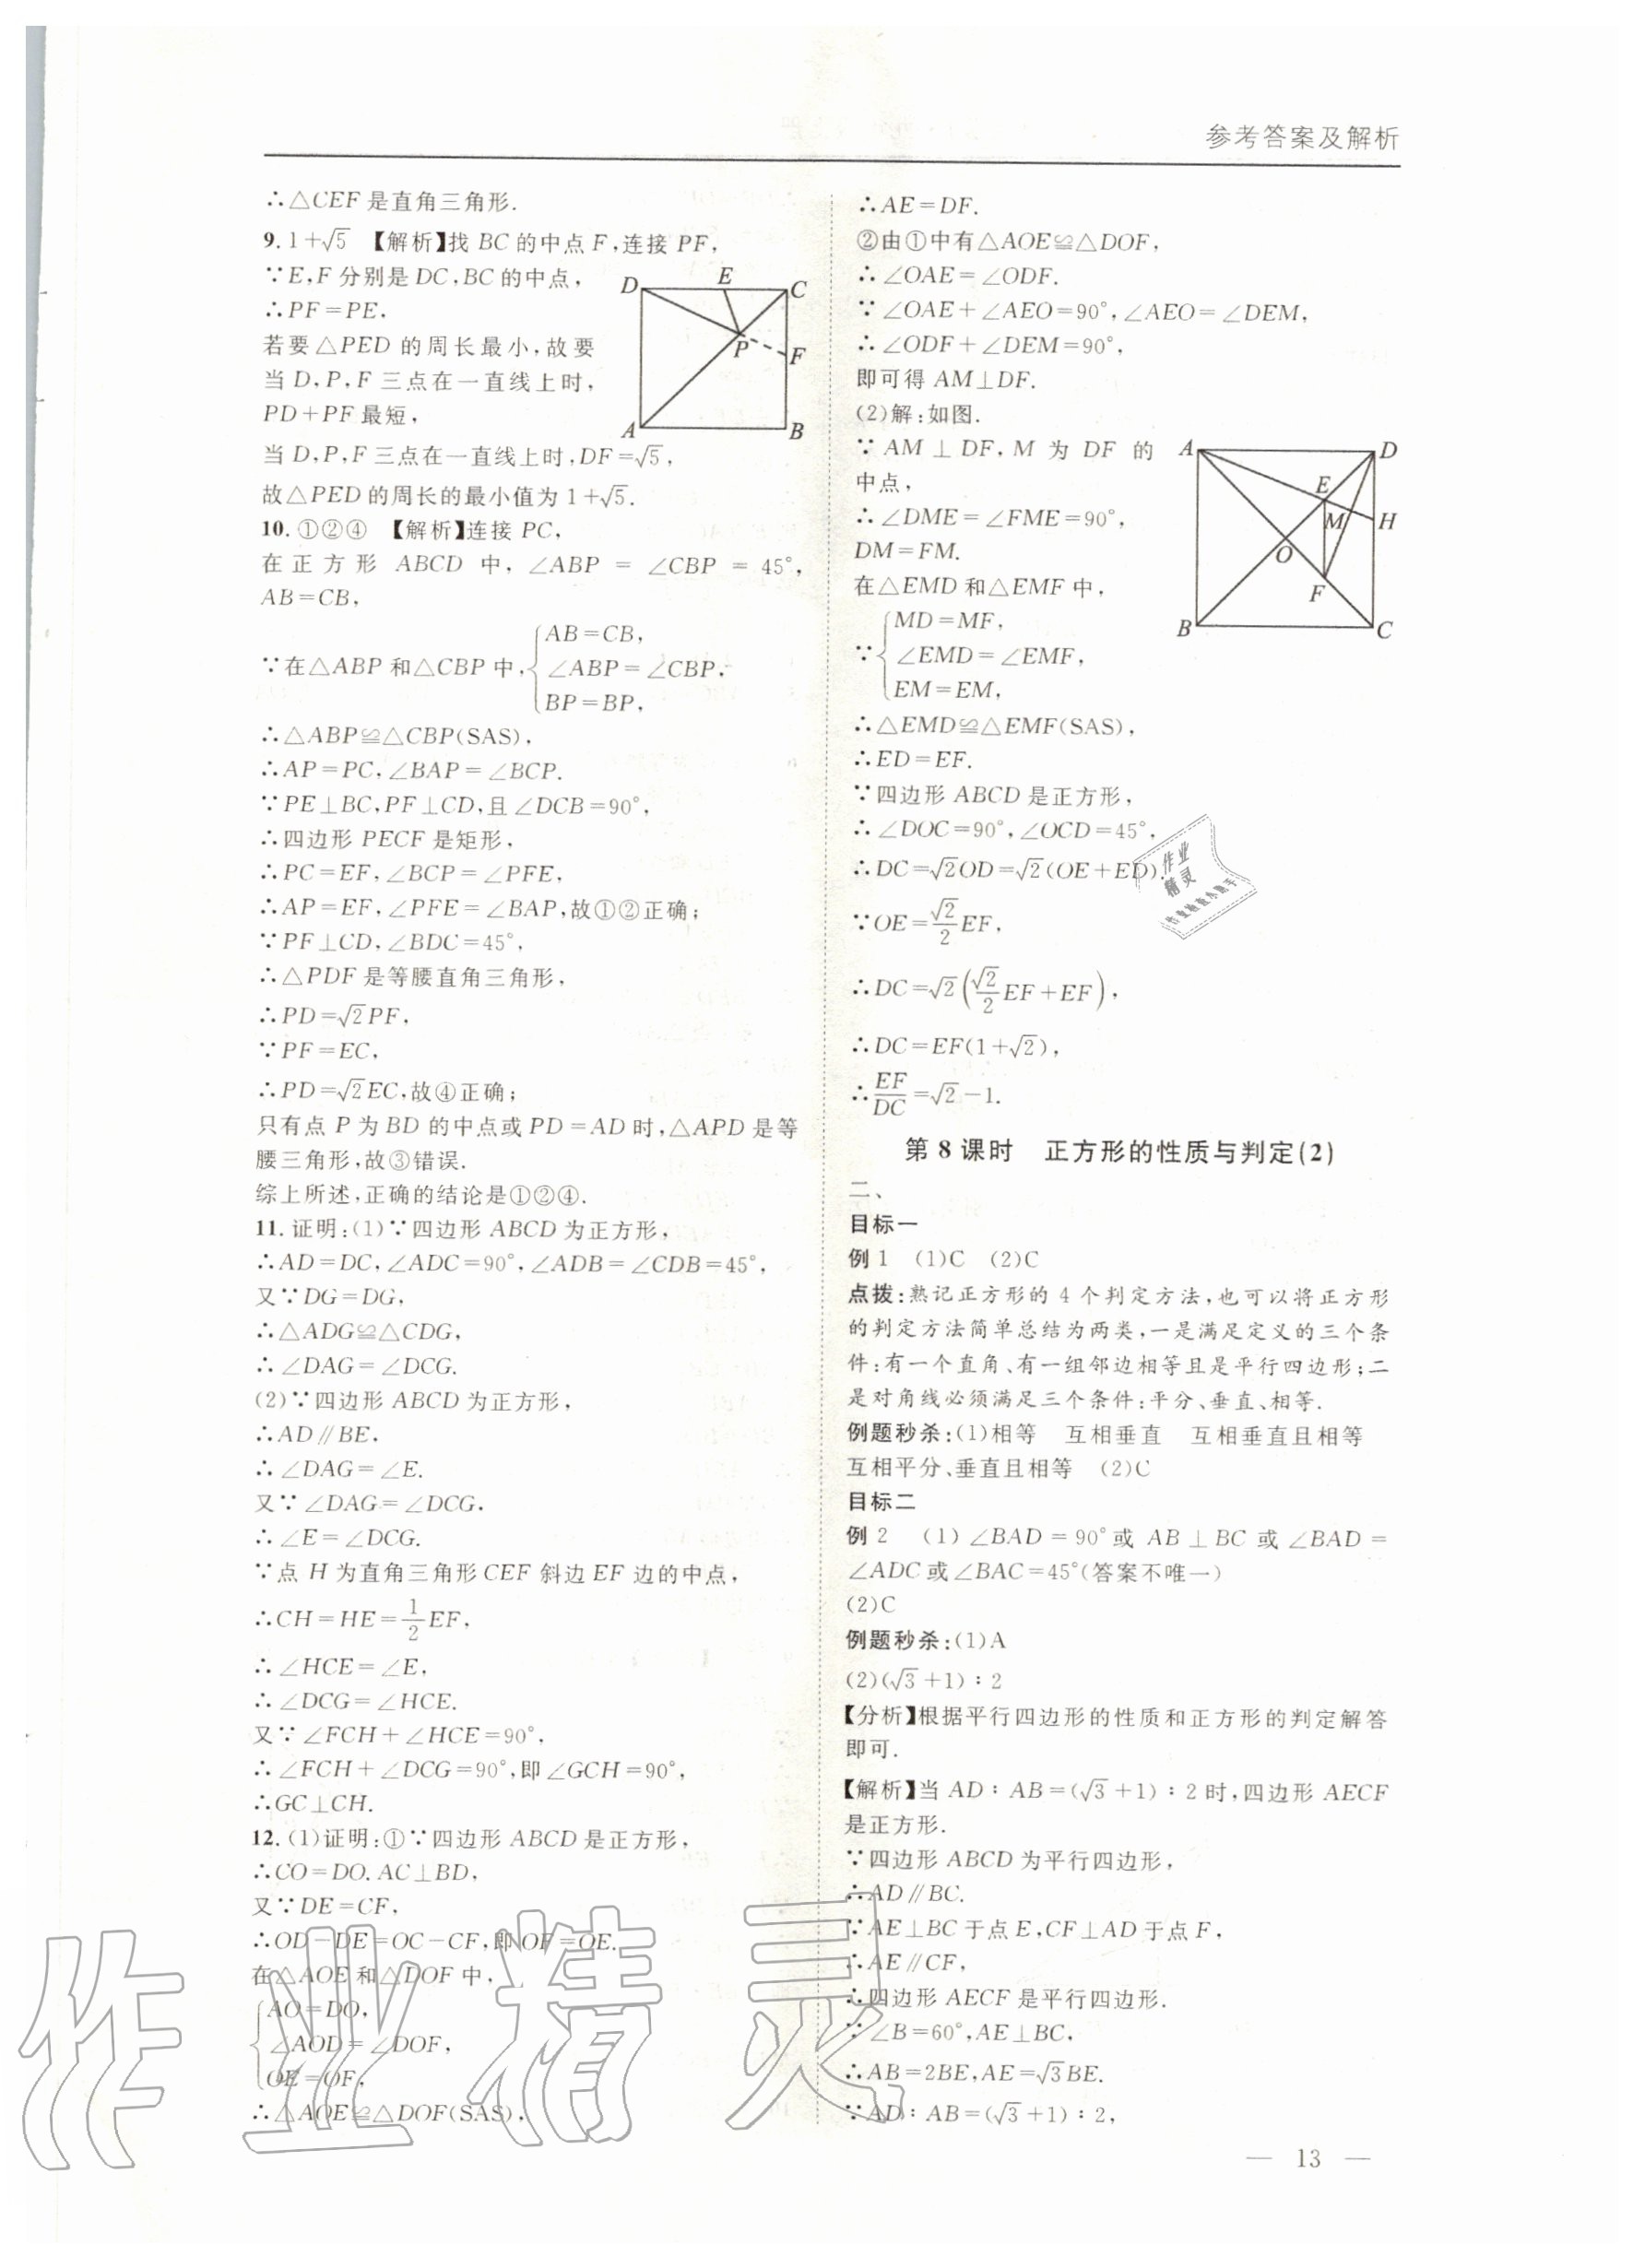 参考答案及解析
∴△CEF是直角三角形.
9. 1+√5 【解析】找BC的中点F,连接PF,
∵E,F分别是DC,BC的中点,
∴PF=PE,
若要△PED的周长最小,故要
当D,P,F三点在一直线上时,
PD+PF最短,
当D,P,F三点在一直线上时,DF=√5,
故△PED的周长的最小值为1+√5.
D E C
P F
A B
10. ①②④ 【解析】连接PC,
在正方形ABCD中,∠ABP=∠CBP=45°,
AB=CB,
∵在△ABP和△CBP中,{AB=CB,
∠ABP=∠CBP,
BP=BP,
∴△ABP≌△CBP(SAS),
∴AP=PC,∠BAP=∠BCP.
∵PE⊥BC,PF⊥CD,且∠DCB=90°,
∴四边形PECF是矩形,
∴PC=EF,∠BCP=∠PFE,
∴AP=EF,∠PFE=∠BAP,故①②正确;
∵PF⊥CD,∠BDC=45°,
∴△PDF是等腰直角三角形,
∴PD=√2PF,
∵PF=EC,
∴PD=√2EC,故④正确;
只有点P为BD的中点或PD=AD时,△APD是等
腰三角形,故③错误.
综上所述,正确的结论是①②④.
11. 证明:(1)∵四边形ABCD为正方形,
∴AD=DC,∠ADC=90°,∠ADB=∠CDB=45°,
又∵DG=DG,
∴△ADG≌△CDG,
∴∠DAG=∠DCG.
(2)∵四边形ABCD为正方形,
∴AD∥BE,
∴∠DAG=∠E.
又∵∠DAG=∠DCG,
∴∠E=∠DCG.
∵点H为直角三角形CEF斜边EF边的中点,
∴CH=HE=1/2EF,
∴∠HCE=∠E,
∴∠DCG=∠HCE.
又∵∠FCH+∠HCE=90°,
∴∠FCH+∠DCG=90°,即∠GCH=90°,
∴GC⊥CH.
12. (1)证明:①∵四边形ABCD是正方形,
∴CO=DO.AC⊥BD,
又∵DE=CF,
∴OD-DE=OC-CF,即OF=OE.
在△AOE和△DOF中,
{AO=DO,
∠AOD=∠DOF,
OE=OF,
∴△AOE≌△DOF(SAS),
∴AE=DF.
②由①中有△AOE≌△DOF,
∴∠OAE=∠ODF.
∵∠OAE+∠AEO=90°,∠AEO=∠DEM,
∴∠ODF+∠DEM=90°,
即可得AM⊥DF.
(2)解:如图.
∵AM⊥DF,M为DF的
中点,
∴∠DME=∠FME=90°,
DM=FM.
在△EMD和△EMF中,
∵{MD=MF,
∠EMD=∠EMF,
EM=EM,
A D
E
M H
O
F
B C
∴△EMD≌△EMF(SAS),
∴ED=EF.
∵四边形ABCD是正方形,
∴∠DOC=90°,∠OCD=45°,
∴DC=√2OD=√2(OE+ED).
∵OE=√2/2EF,
∴DC=√2(√2/2EF+EF),
∴DC=EF(1+√2),
∴EF/DC=√2-1.
第8课时 正方形的性质与判定(2)
二、
目标一
例1 (1)C (2)C
点拨:熟记正方形的4个判定方法,也可以将正方形
的判定方法简单总结为两类,一是满足定义的三个条
件:有一个直角、有一组邻边相等且是平行四边形;二
是对角线必须满足三个条件:平分、垂直、相等.
例题秒杀:(1)相等 互相垂直 互相垂直且相等
互相平分、垂直且相等 (2)C
目标二
例2 (1)∠BAD=90°或AB⊥BC或∠BAD=
∠ADC或∠BAC=45°(答案不唯一)
(2)C
例题秒杀:(1)A
(2)(√3+1):2
【分析】根据平行四边形的性质和正方形的判定解答
即可.
【解析】当AD:AB=(√3+1):2时,四边形AECF
是正方形.
∵四边形ABCD为平行四边形,
∴AD∥BC.
∵AE⊥BC于点E,CF⊥AD于点F,
∴AE∥CF,
∴四边形AECF是平行四边形.
∵∠B=60°,AE⊥BC,
∴AB=2BE,AE=√3BE.
∵AD:AB=(√3+1):2,
— 13 —
作业精灵
作业
精灵